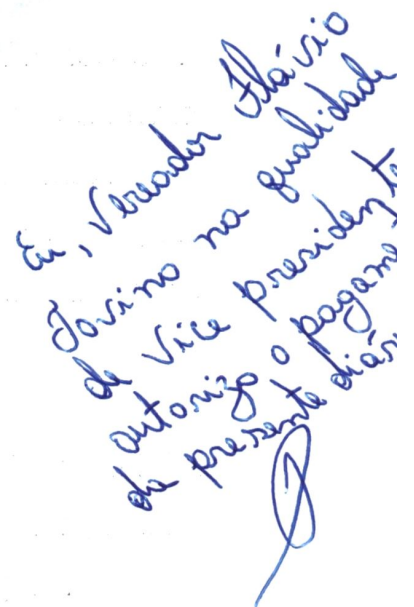 Eu, Vereador Flávio
Jovino na qualidade
de Vice presidente
autorizo o pagame
da presente diár